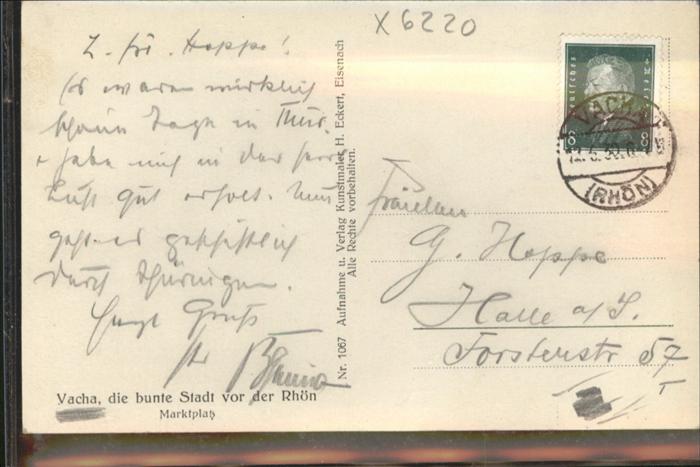 X 6220
L. Frl. Hoppe!
Es waren wirklich
schöne Tage in Thür.
+ habe mich in der
Luft gut erholt. Nun
geht es geschäftlich
durch Thüringen.
Gruß
Ihr
Vacha, die bunte Stadt vor der Rhön
Marktplatz
Nr. 1067 Aufnahme u. Verlag Kunstmaler H. Eckert, Eisenach
Alle Rechte vorbehalten.
Deutsches Reich
8 8
VACHA
(RHÖN)
Fräulein
G. Hoppe
Halle a/S.
Forsterstr 57
I